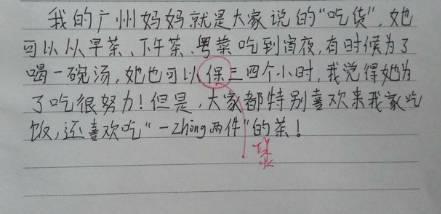 我的广州妈妈就是大家说的“吃货”，她
可以从早茶、下午茶、粤菜吃到宵夜，有时候为了
喝一碗汤，她也可以保三四个小时，我觉得她为
了吃很努力！但是，大家都特别喜欢来我家吃
饭，还喜欢吃“一zhōng两件”的茶！